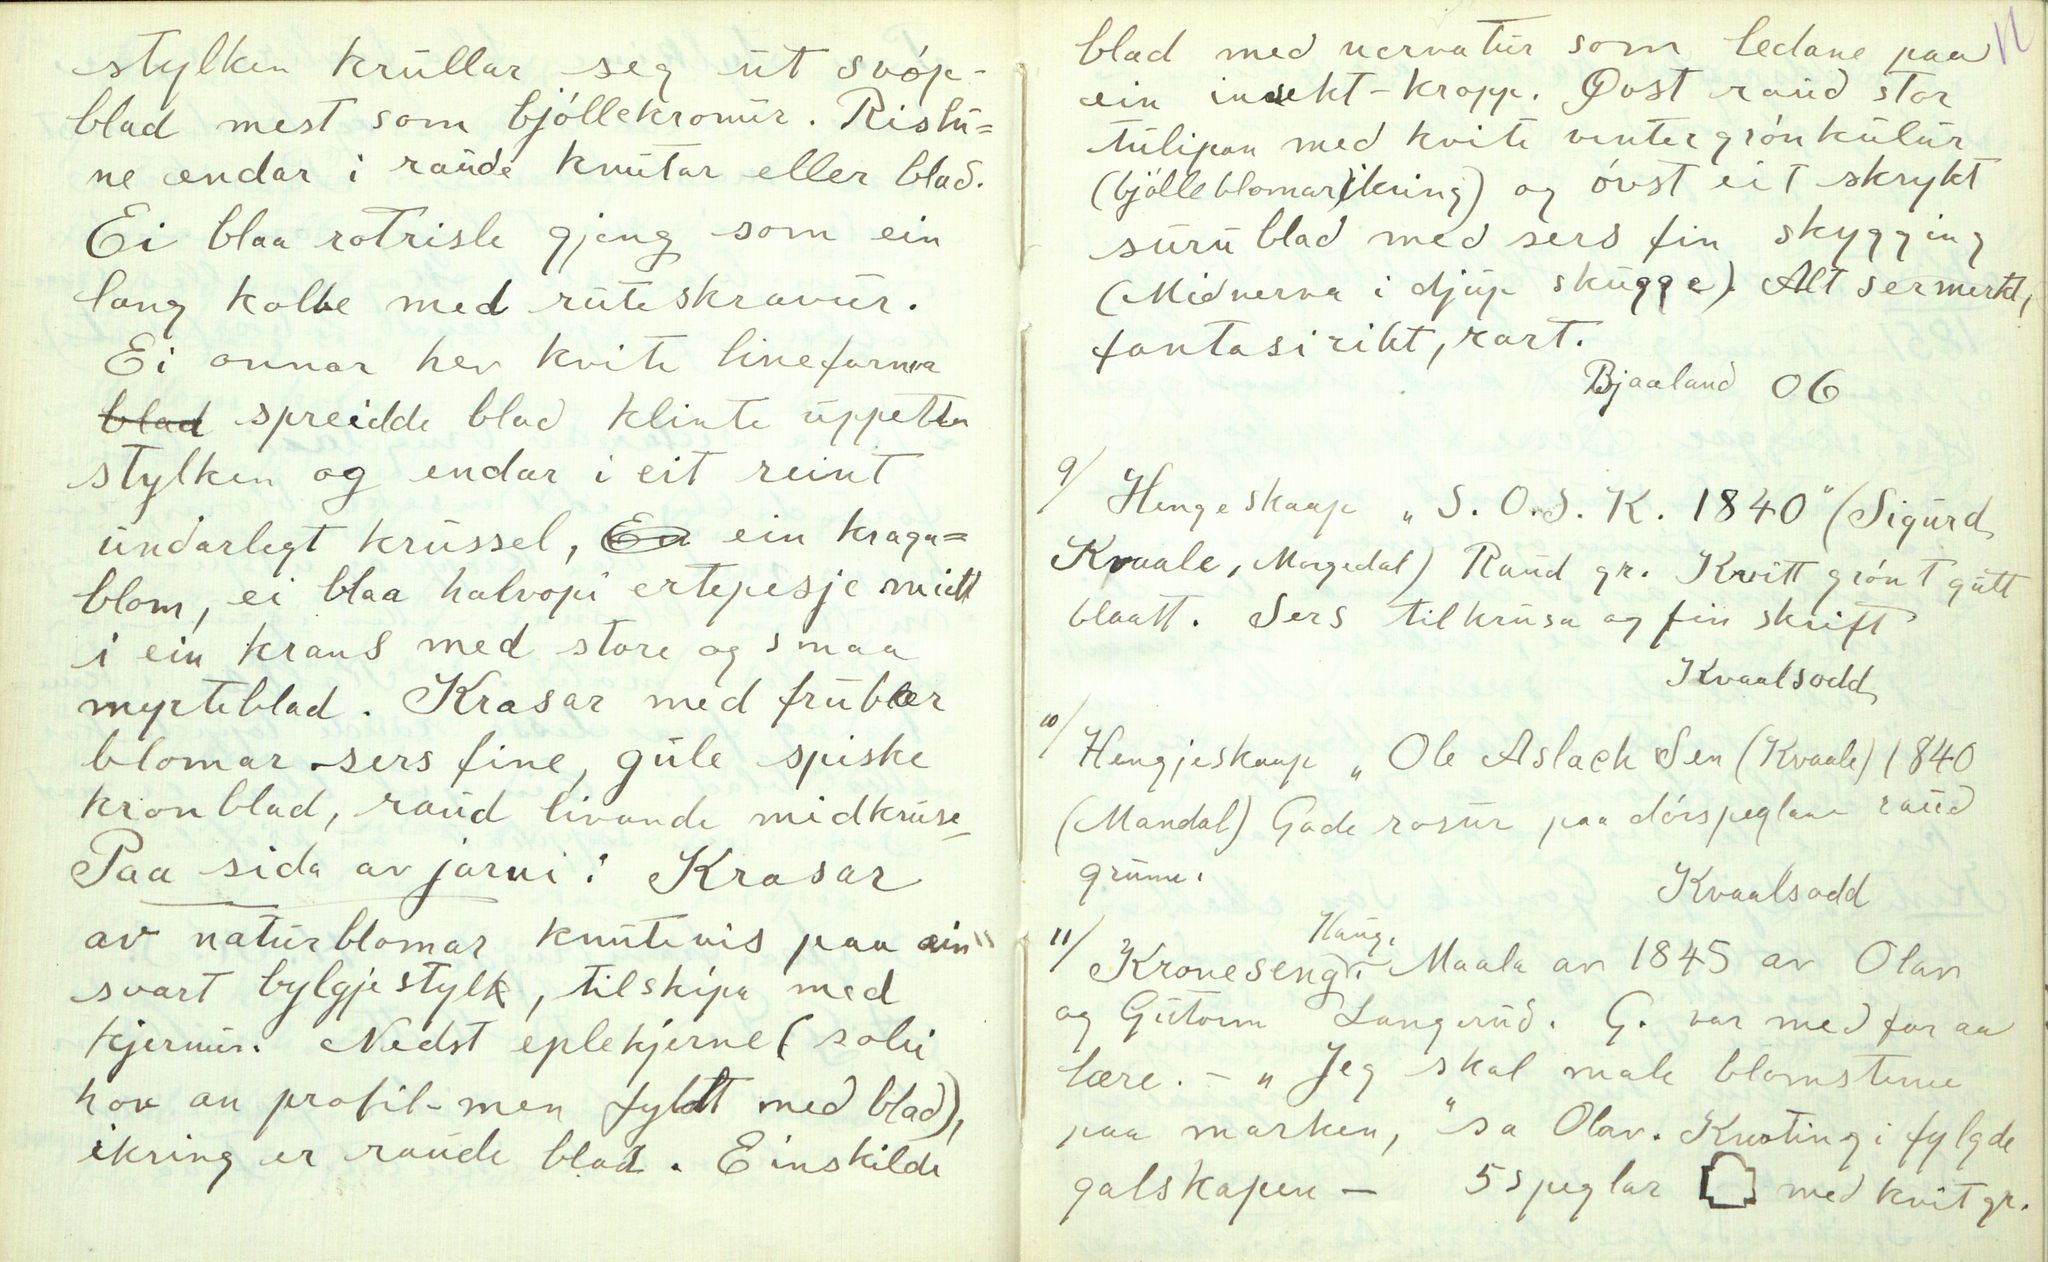 stylken krullar seg ut svóp-
blad mest som bjóllekronur. Rislu=
ne endar i raude knutar eller blad.
Ei blaa rotrisle gjeng som ein
lang kolbe med ruteskravur.
Ei annar hev kvite linefarva
blad spreidde blad klinte uppetter
stylken og endar i eit reint
undarlegt krussel, ein kraga=
blom, ei blaa halvopi ertepesje midt
i ein krans med store og smaa
myrteblad. Krasar med
blomar sers fine, gule spiske
kronblad, raud livande midkruse
Paa sida av jarni: Krasar
av naturblomar knutevis paa ein
svart bylgjestylk, tilskipa med
kjernur. Nedst eplekjerne (soli
hov an profil - men fyldt med blad),
ikring er raude blad. Einskilde
11
blad med nervatur som ledane paa
ein insekt-kropp. Óvst raud stor
tulipan med kvite vintergrónkulur
(bjólleblomar ikring) og óvst eit skrykt
surublad med sers fin skygging
(Midnerva i djup skugge). Alt sermerkt,
fantasirikt, rart.
Bjaaland 06
9/ Hengeskaap „S. O. S. K. 1840" (Sigurd
Kvaale, Morgedal) Raud gr. Kvitt grónt gult
blaatt. Sers tilkrusa og fin skrift
Kvaalsodd
10/ Hengjeskaap „Ole Aslack Sen (Kvaale) 1840
(Mandal) Gode rosur paa dórspeglane raud
grunn.
Kvaalsodd
Haug.
11/ Kroneseng. Maala av 1845 av Olav
og Gutorm Langerud. G. var med for aa
lære. – „Jeg skal male blomsterne
paa marken," sa Olav. Knoting i fylgde
galskapen – 5 speglar med kvit gr.